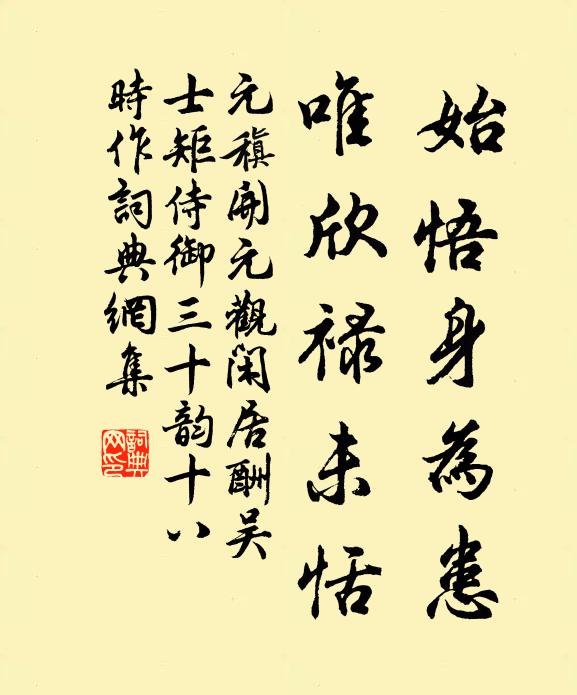 始悟身為患
唯欣祿未恬
元稹開元觀閑居酬吳
士矩侍御三十韵十八
時作詞典網集
詞典網印